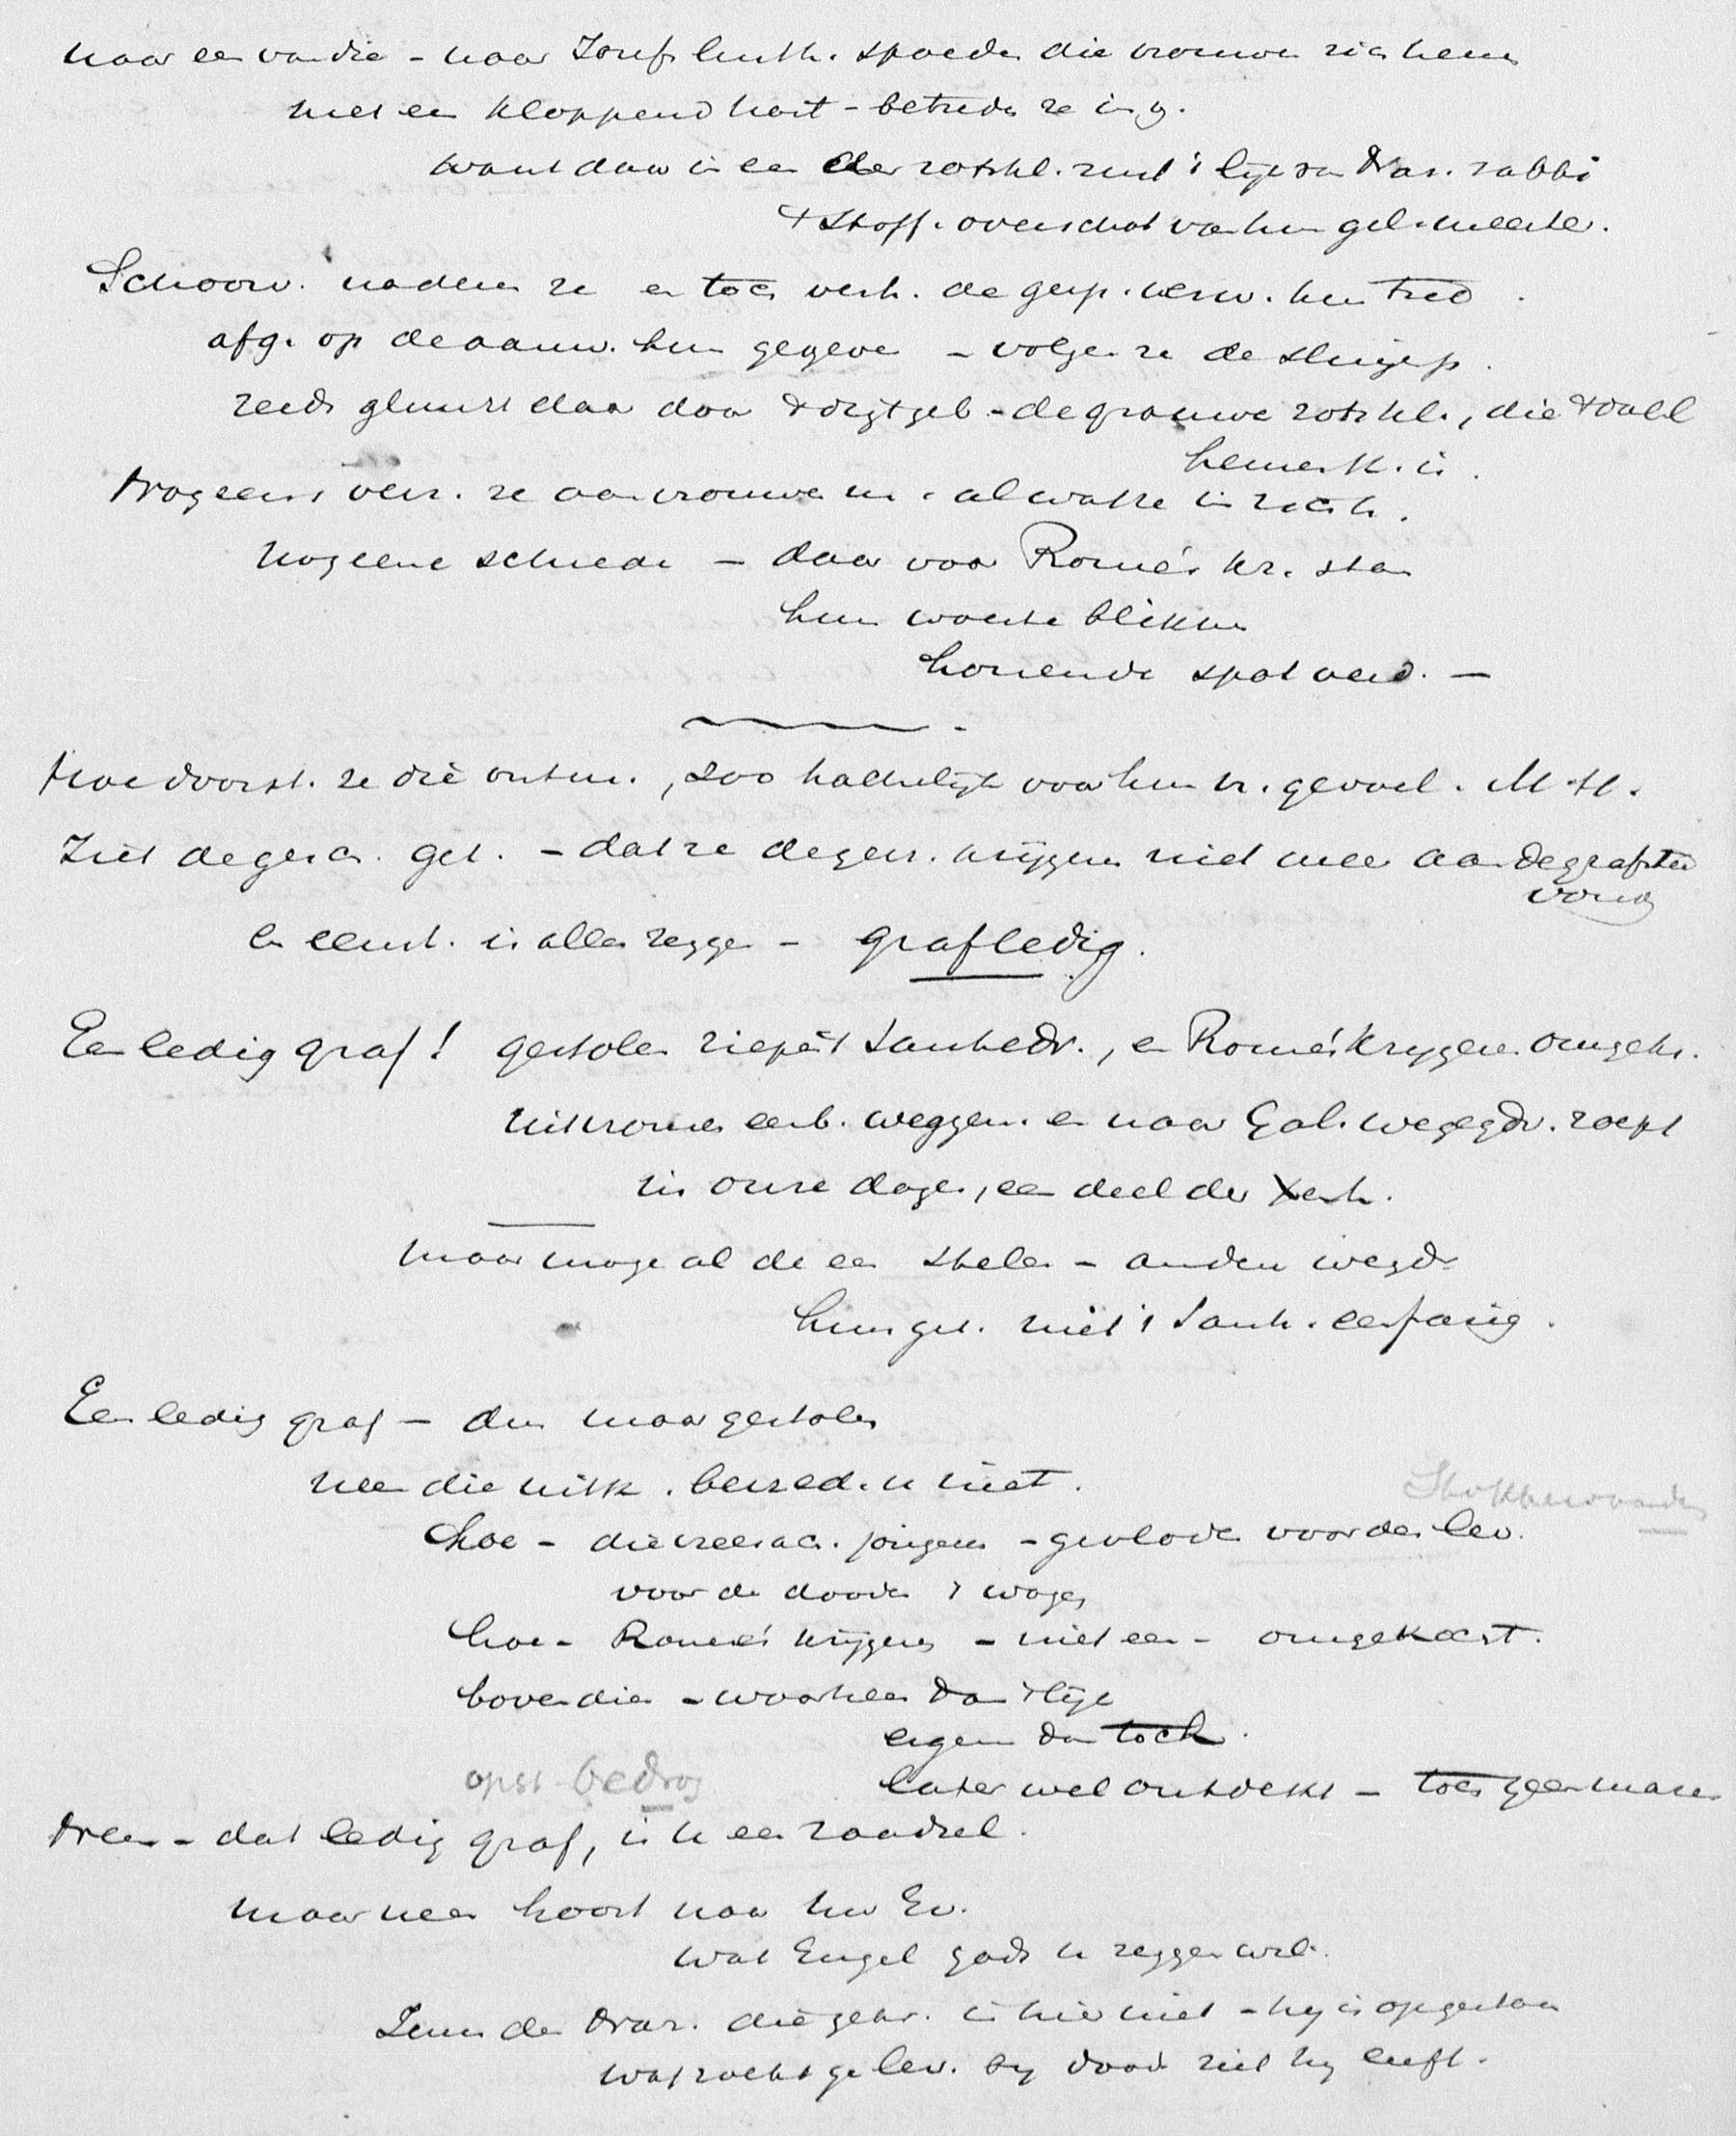 naar een van die - naar Jozefs lusth. spoeden die vrouwen zich heen
met een kloppend hart - betreden ze in g.
want daar in een der rotskl. rust 't lijk van Naz. rabbi
't stoff. overschot van hun gel. meester.
Schoorv. naderen ze en toch verh. de gesp. verw. hun tred.
afg. op de aanw. hun gegeven - volgen ze de slingerp.
reeds gluurt daar door 't dijtgeb - de grauwe rotskl., die 't doel
hemerk. is.
Nog eens verz. ze aan vrouwen in. al wat ze in zich h.
nog eene schrede - daar voor Rome's kr. staan
hun woeste blikken
honende spot verd. -
Hoe doorst. ze die ontm., zoo hachelijk voor hun vr. gevoel. M. H.
Ziet de gesch. get. - dat ze de gen. krijgers niet meer aan de grafstee
vond
en eenst. is aller zeggen - graf ledig.
Een ledig graf! gestolen riep 't Sanhedr., en Rome's krijgers omgek.
uit vrome eerb. weggen. en naar Gal. wegged. roept
in onze dagen, een deel der kerk.
maar moge al de een stelen - andere wegd
hun get. niet 't Sanh. eenparig.
Een ledig graf - dus maar gestolen
neen die uitk. bevred. u niet.
Stokbewaarder
hoe - die vreesach. jongeren - gevloden voor den lev.
voor de dooden 't wagen
hoe - Rome's krijgers - niet een - omgekocht.
bovendien - waarheen dan 't lijk
ergens dan toch.
opst bedrog
later wel ontdekt - toch geen mare
Neen - dat ledig graf, is u een raadsel.
maar neen hoort naar uw Ev.
wat Engel gods u zeggen wil.
Jezus den Naz. die gekr. is hier niet - hij is opgestaan
wat zoekt ge lev. bij dood. ziet hij leeft.